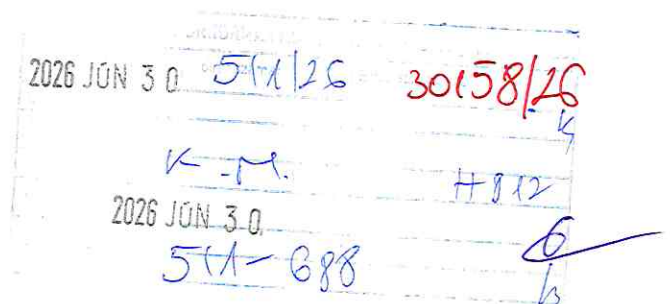 2026 JÚN 30 511/26 30158/26
K.M. H812
2026 JÚN 30.
511-688 6